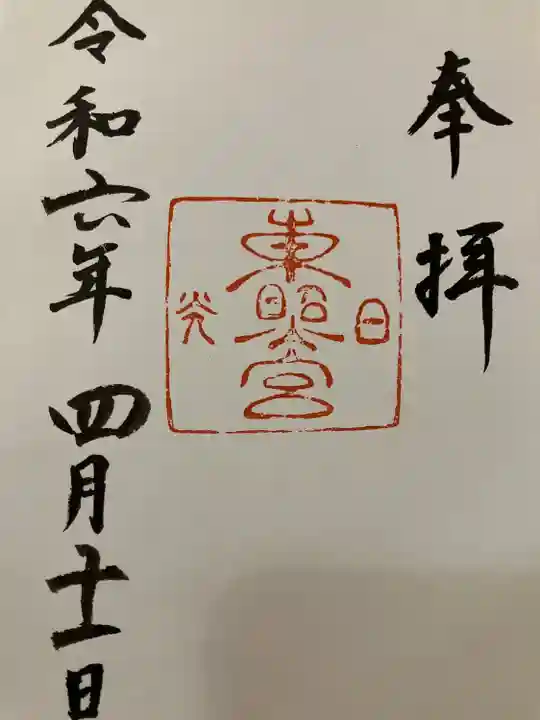 奉拝
日光
東照宮
令和六年四月十一日